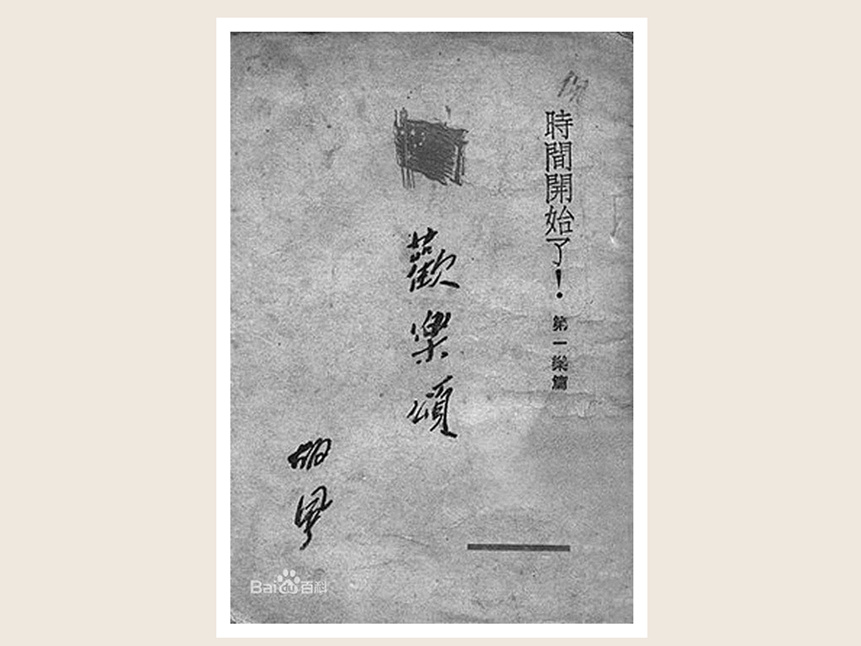 時間開始了！
第一樂篇
歡樂頌
胡風
Baidu百科